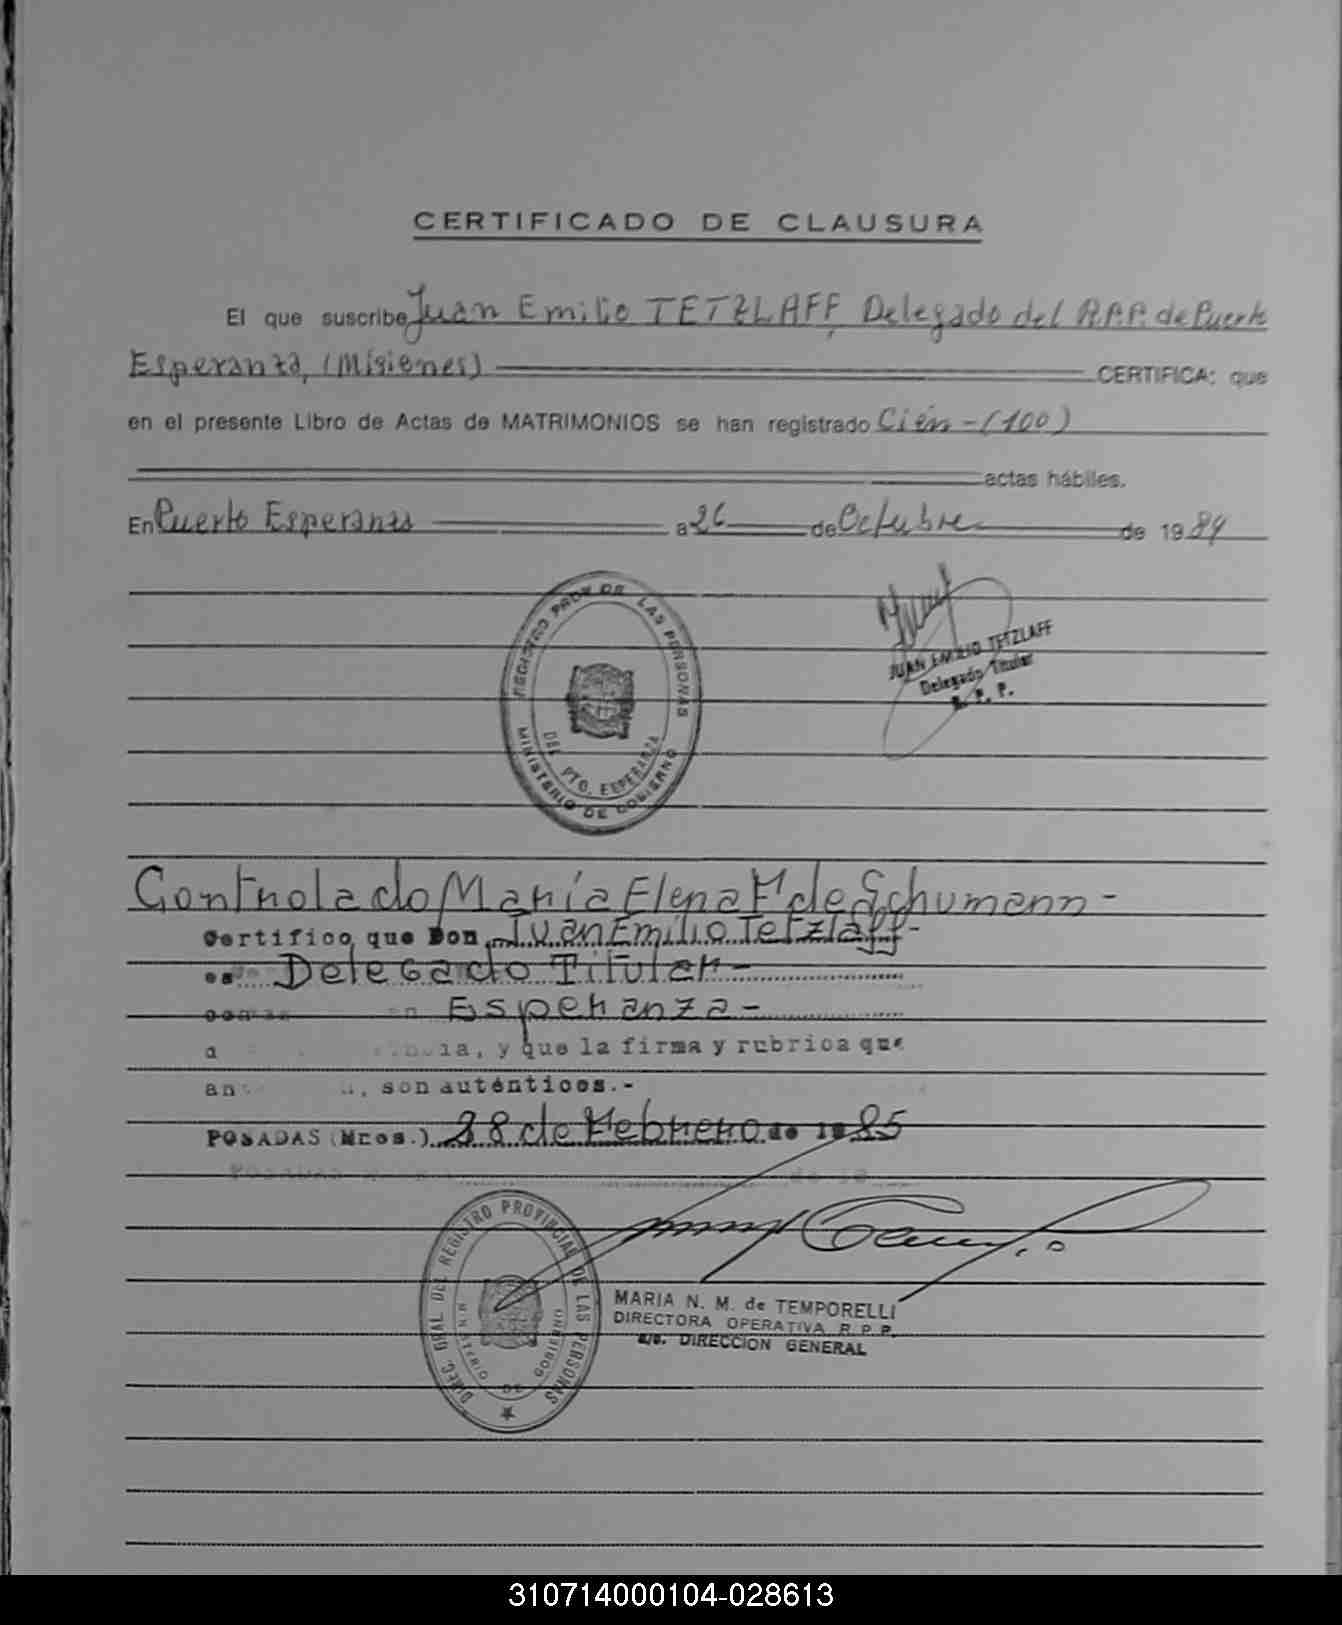 CERTIFICADO DE CLAUSURA
El que suscribe Juan Emilio TETZLAFF, Delegado del R.P.P. de Puerto
Esperanza, (Misiones) CERTIFICA: que
en el presente Libro de Actas de MATRIMONIOS se han registrado Cién - (100)
actas hábiles.
En Puerto Esperanza a 26 de Octubre de 1984
REGISTRO PROV. DE LAS PERSONAS
DEL PTO. ESPERANZA
MINISTERIO DE GOBIERNO
JUAN EMILIO TETZLAFF
Delegado Titular
R. P. P.
Controlado María Elena F de Schumann -
Certifico que Don Juan Emilio Tetzlaff -
es Delegado Titular -
Esperanza -
a , y que la firma y rubrica que
an , son autenticos.-
POSADAS (Mnes.) 28 de Febrero de 1985
DIREC. GRAL DEL REGISTRO PROVINCIAL DE LAS PERSONAS
MINISTERIO DE GOBIERNO
MARIA N. M. de TEMPORELLI
DIRECTORA OPERATIVA R. P. P.
a/c. DIRECCION GENERAL
310714000104-028613